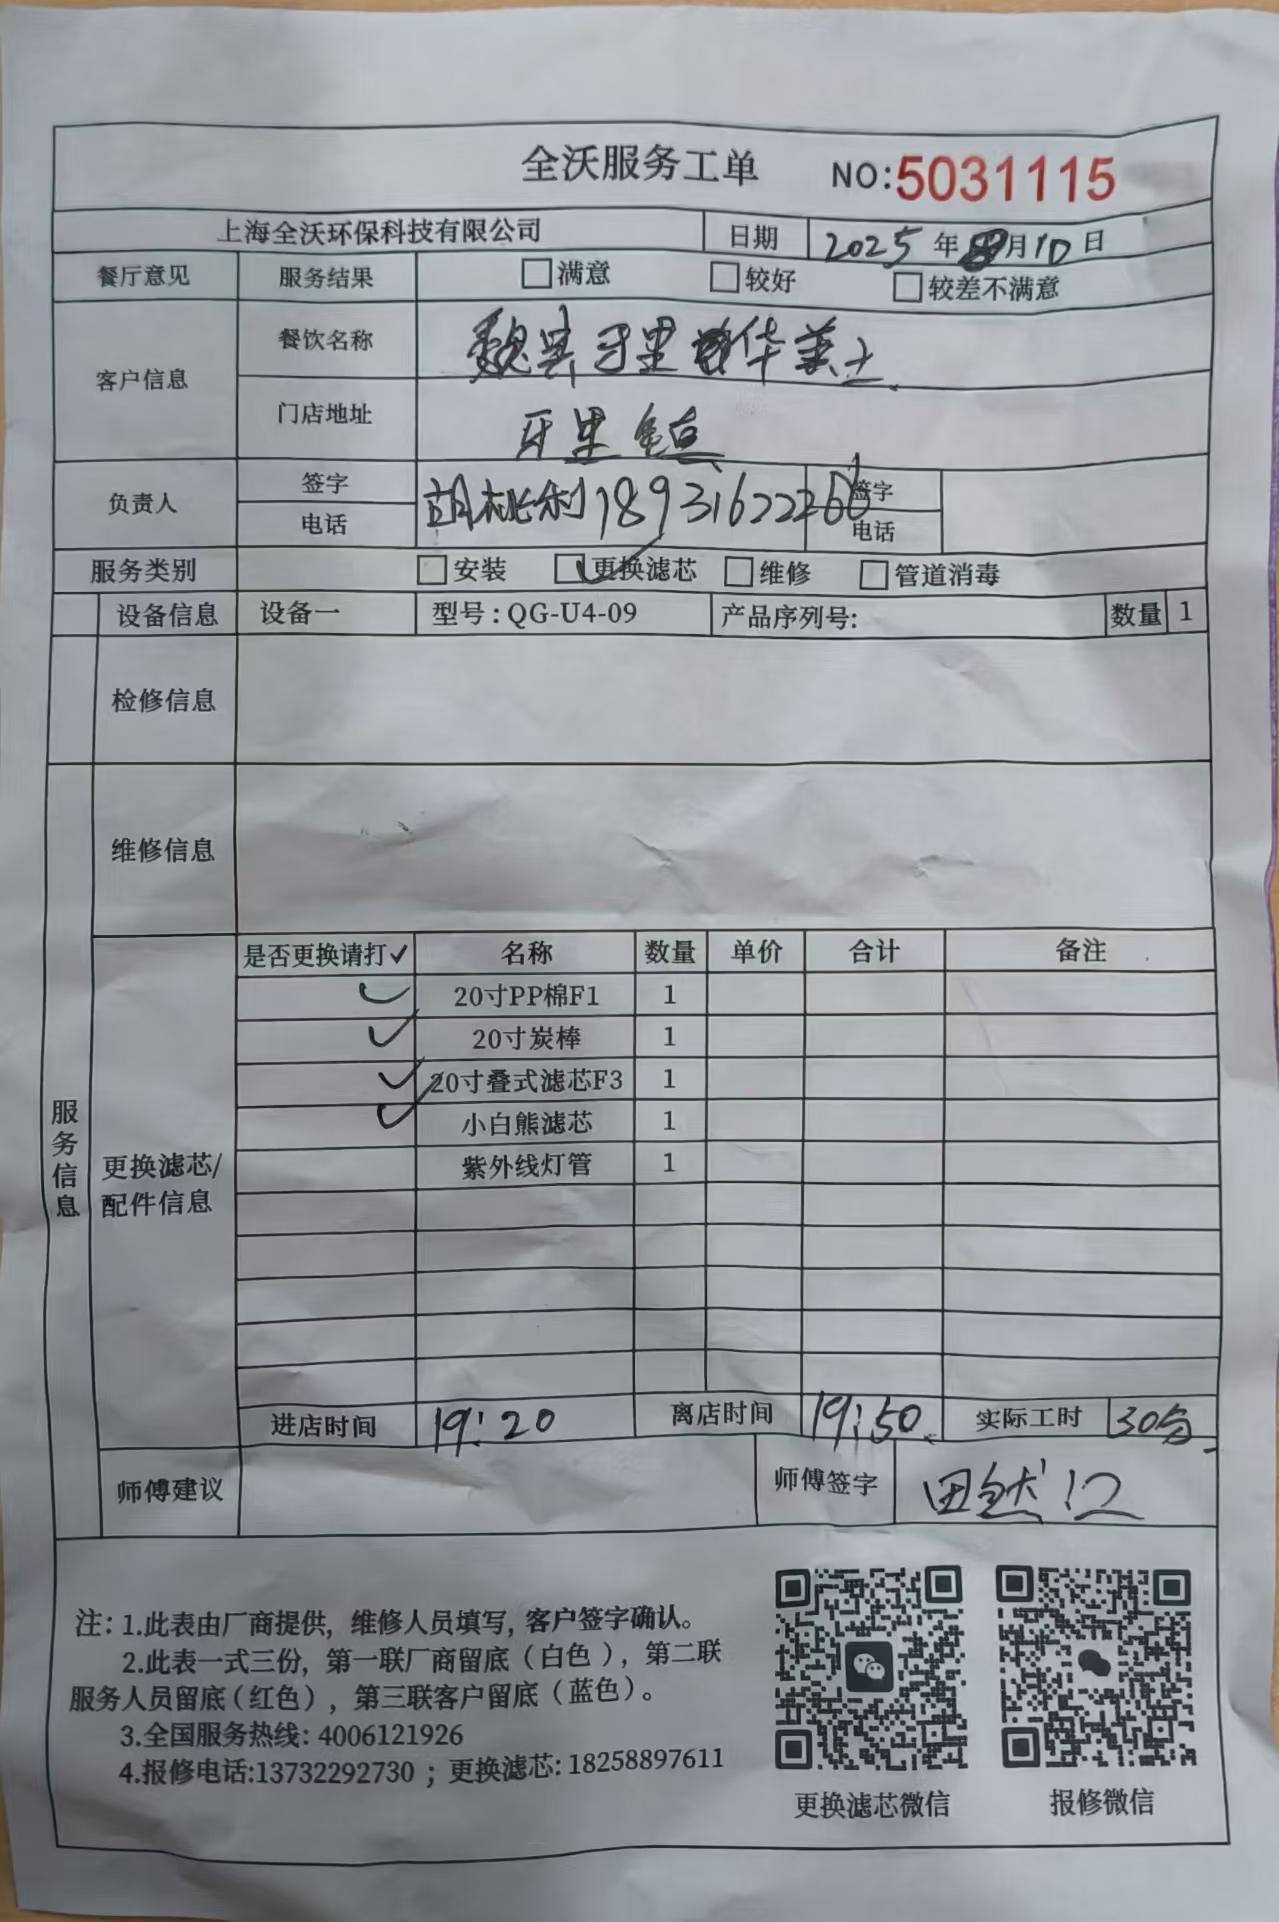 全沃服务工单 NO:5031115
上海全沃环保科技有限公司 日期 2025年 月10日
餐厅意见 服务结果 □满意 □较好 □较差不满意
客户信息 餐饮名称 魏县牙里 华美士
门店地址 牙里镇
负责人 签字 胡桃利 签字
电话 电话
服务类别 □安装 ☑更换滤芯 □维修 □管道消毒
设备信息 设备一 型号:QG-U4-09 产品序列号: 数量 1
检修信息
维修信息
服务信息
更换滤芯/
配件信息
是否更换请打✓ 名称 数量 单价 合计 备注
✓ 20寸PP棉F1 1
✓ 20寸炭棒 1
✓ 20寸叠式滤芯F3 1
✓ 小白熊滤芯 1
紫外线灯管 1
进店时间 19:20 离店时间 19:50 实际工时 30分
师傅建议 师傅签字 田
注: 1.此表由厂商提供, 维修人员填写, 客户签字确认。
2.此表一式三份, 第一联厂商留底（白色）, 第二联
服务人员留底（红色）, 第三联客户留底（蓝色）。
3.全国服务热线: 4006121926
4.报修电话:13732292730 ; 更换滤芯: 18258897611
更换滤芯微信 报修微信